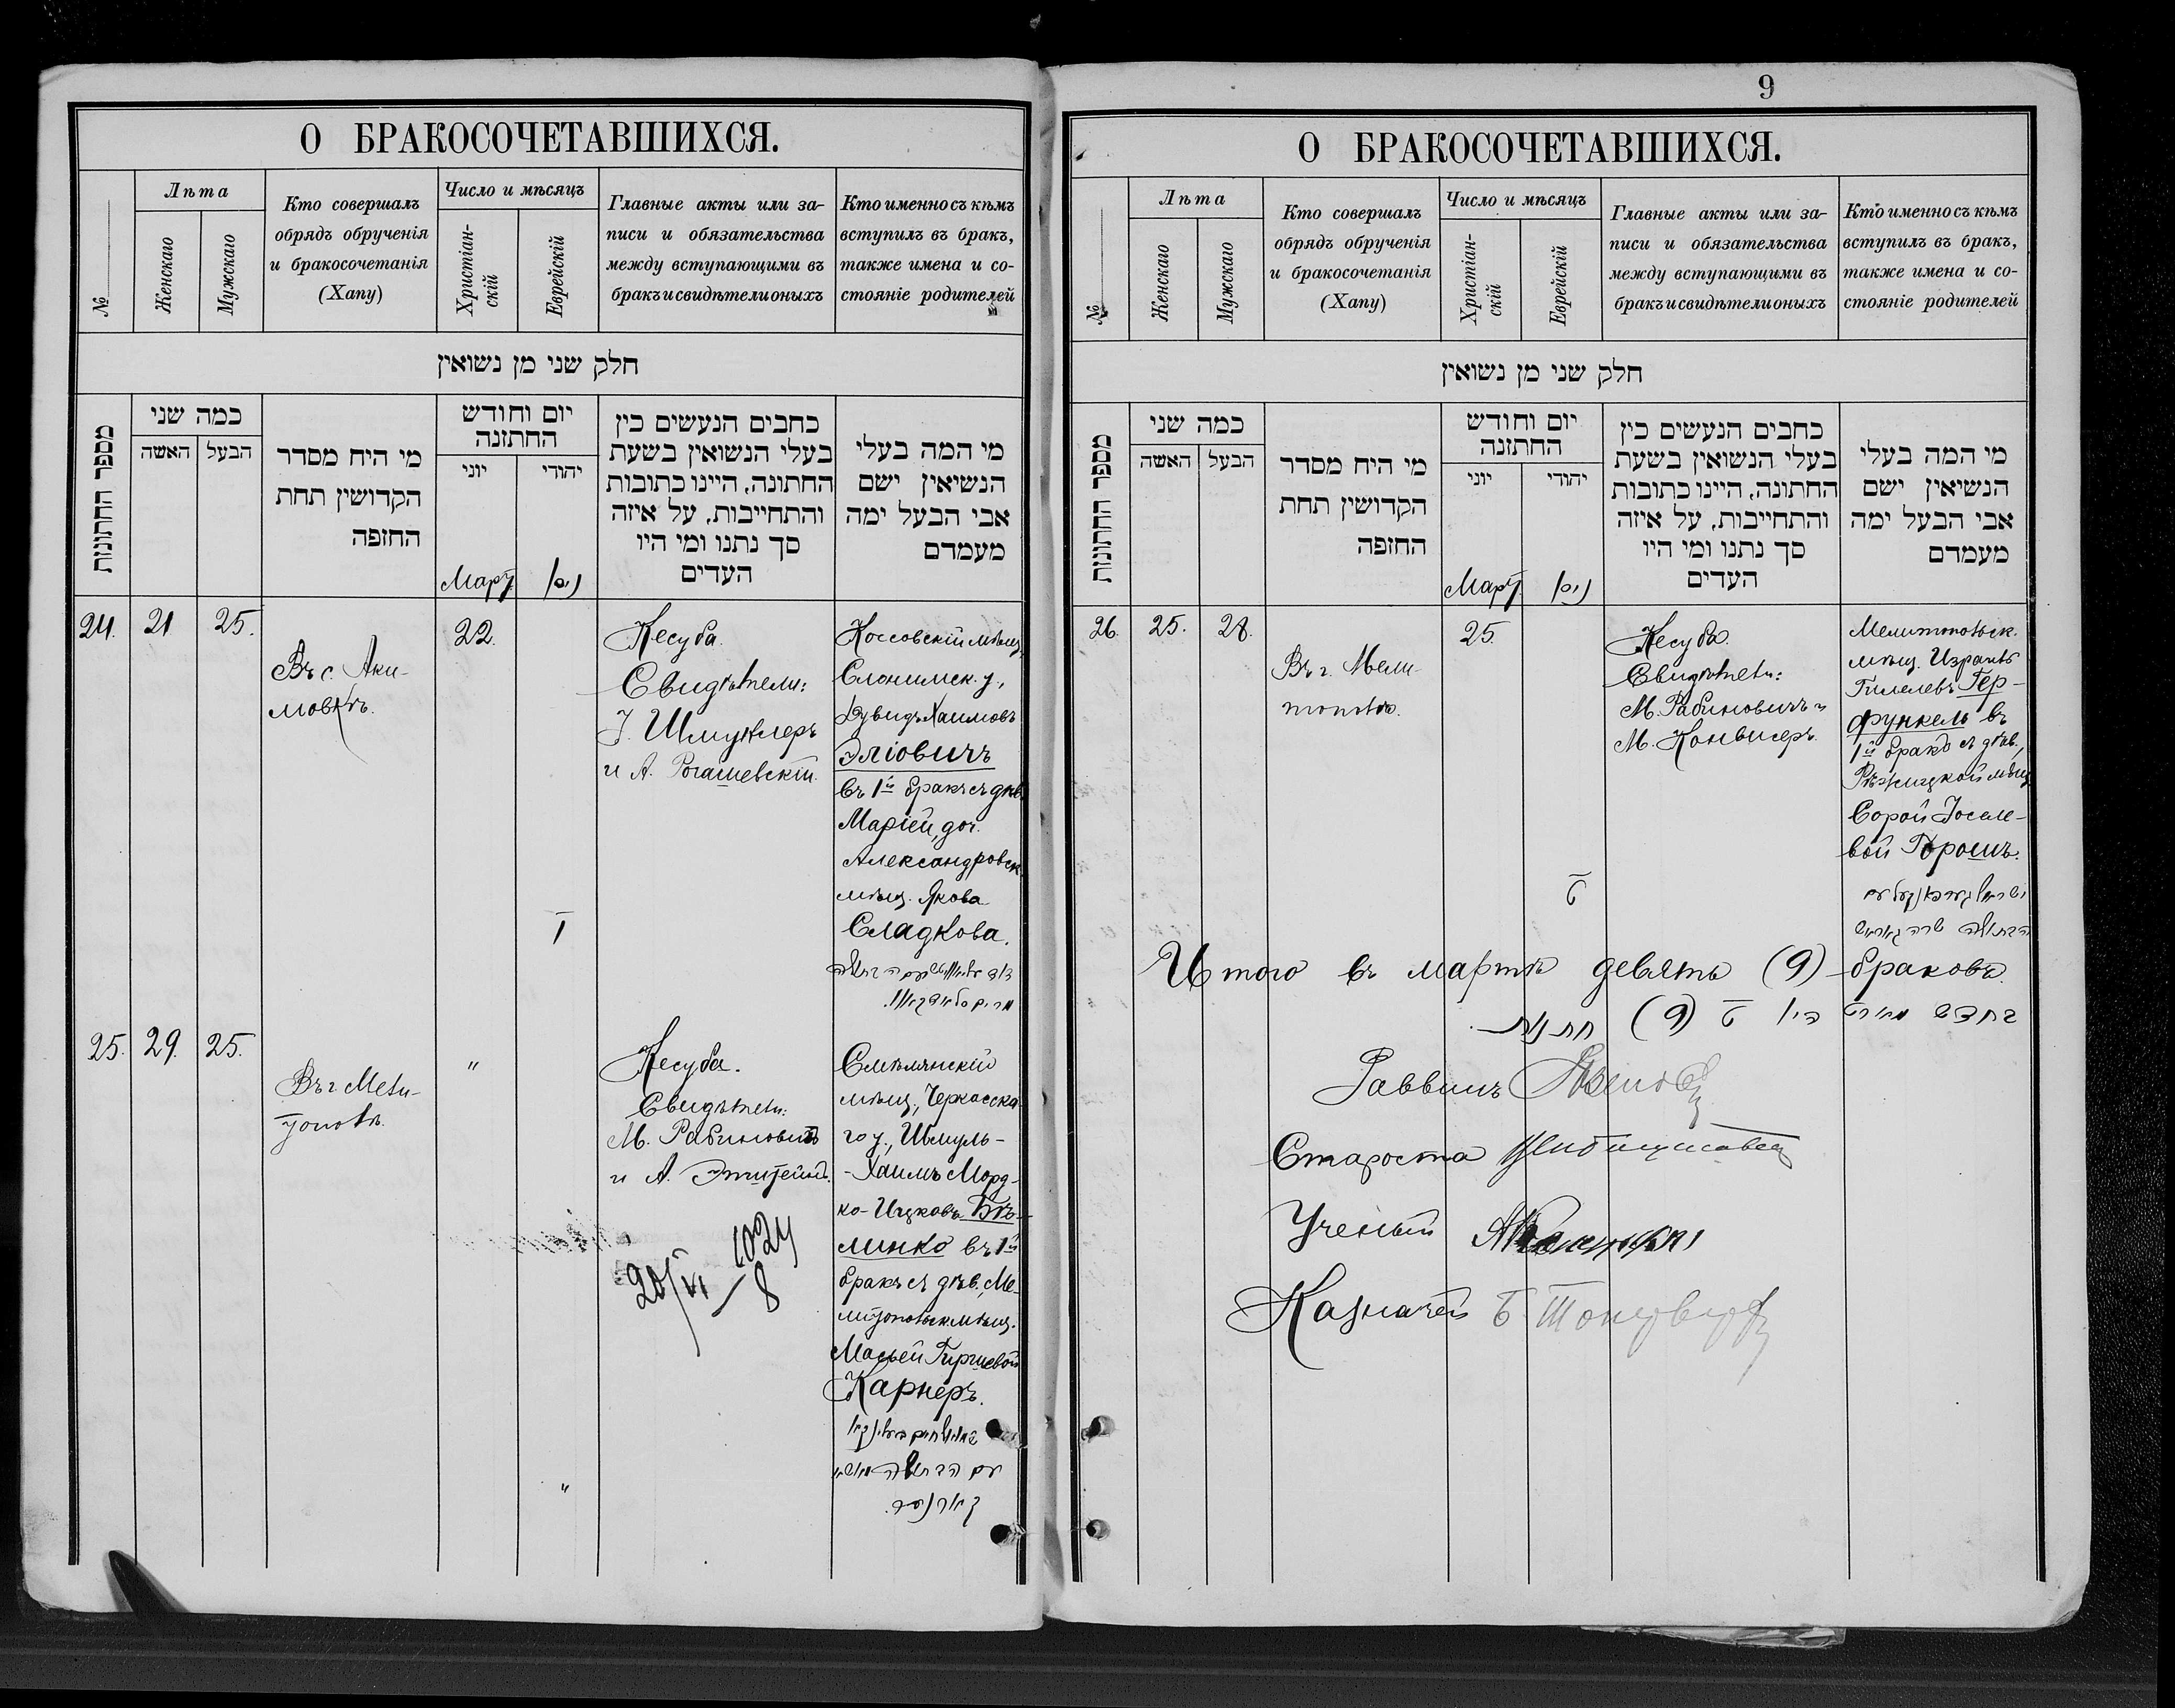 О БРАКОСОЧЕТАВШИХСЯ.
№
Лѣта
Женскаго
Мужскаго
Кто совершалъ
обрядъ обрученія
и бракосочетанія
(Хапу)
Число и мѣсяцъ
Христіан-
скій
Еврейскій
Главные акты или за-
писи и обязательства
между вступающими въ
бракъ и свидѣтели оныхъ
Кто именно съ кѣмъ
вступилъ въ бракъ,
также имена и со-
стояніе родителей
חלק שני מן נשואין
מספר החתונות
כמה שני
האשה
הבעל
מי היח מסדר
הקדושין תחת
החזפה
יום וחודש
החתזנה
יוני
יהודי
Мартъ
ניסן
כחבים הנעשים כין
בעלי הנשואין בשעת
החתונה, היינו כתובות
והתחייבות, על איזה
סך נתנו ומי היו
העדים
מי המה בעלי
הנשיאין ישם
אבי הבעל ימה
מעמדם
24. 21 25.
Въ с. Аки-
мовкѣ.
22.
Кесуба.
Свидѣтели:
І. Шмуклеръ
и А. Рогашевскій.
Коссовскій мѣщ.
Слонимск. у.,
Дувидъ Хаимовъ
Эліовичъ
въ 1й бракъ съ дѣв.
Маріей, доч.
Александровск.
мѣщ. Якова
Сладкова.
ז
25. 29. 25.
Въ г. Мели-
тополѣ.
"
Кесуба.
Свидѣтели:
М. Рабиновичъ
и А. Эпштейнъ.
20/VI 1024
8
Смѣлянскій
мѣщ., Черкасска-
го у., Шмуль-
-Хаимъ Морд-
ко-Ицковъ Бѣ-
линко въ 1й
бракъ съ дѣв., Ме-
литопольск. мѣщ.
Масьей Гиршевой
Карнеръ.
"
9
О БРАКОСОЧЕТАВШИХСЯ.
№
Лѣта
Женскаго
Мужскаго
Кто совершалъ
обрядъ обрученія
и бракосочетанія
(Хапу)
Число и мѣсяцъ
Христіан-
скій
Еврейскій
Главные акты или за-
писи и обязательства
между вступающими въ
бракъ и свидѣтели оныхъ
Кто именно съ кѣмъ
вступилъ въ бракъ,
также имена и со-
стояніе родителей
חלק שני מן נשואין
מספר החתונות
כמה שני
האשה
הבעל
מי היח מסדר
הקדושין תחת
החזפה
יום וחודש
החתזנה
יוני
יהודי
Мартъ
ניסן
כחבים הנעשים כין
בעלי הנשואין בשעת
החתונה, היינו כתובות
והתחייבות, על איזה
סך נתנו ומי היו
העדים
מי המה בעלי
הנשיאין ישם
אבי הבעל ימה
מעמדם
26. 25. 28.
Въ г. Мели-
тополѣ.
25.
Кесуба.
Свидѣтели:
М. Рабиновичъ и
М. Конвисеръ.
Мелитопольск.
мѣщ. Израиль
Гилелевъ Гер-
функель въ
1й бракъ съ дѣв.,
Рѣжицкой мѣщ.
Сорой Іоселе-
вой Горошъ.
ט
Итого въ мартѣ девять (9) браковъ.
בחדש מארט היו ט (9) חתונות.
Раввинъ
Староста
Ученый
Казначей